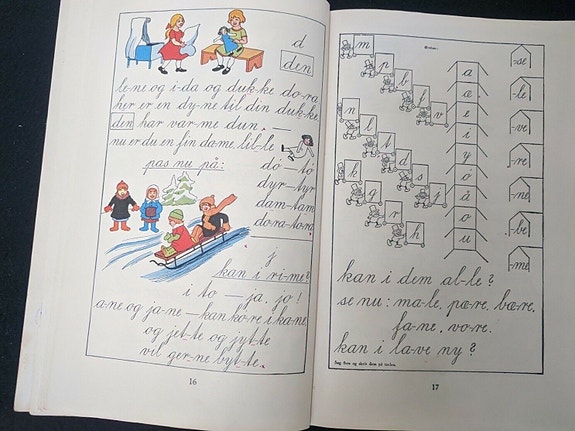 d
den
le-ne og i-da og duk-ke do-ra
her er en dy-ne til din duk-ke
den har var-me dun. —
nu er du en fin da-me, lil-le
pas nu på:
dó — to
dyr — tyr
dam — tam
do-ra — to-ra
j
kan i ri-me?
i to — ja, jo!
a-ne og ja-ne — kan kø-re i ka-ne
og jet-te og jyt-te
vil ger-ne byt-te.
16
m
p
b
f
v
n
l
t
d
s
j
k
g
r
h
a
æ
e
i
y
ø
å
o
u
-se
-le
-ve
-re
-ne
-be
-me
kan i dem al-le?
se nu: ma-le, pæ-re, bæ-re,
fa-ne, vo-re.
kan i la-ve ny?
17